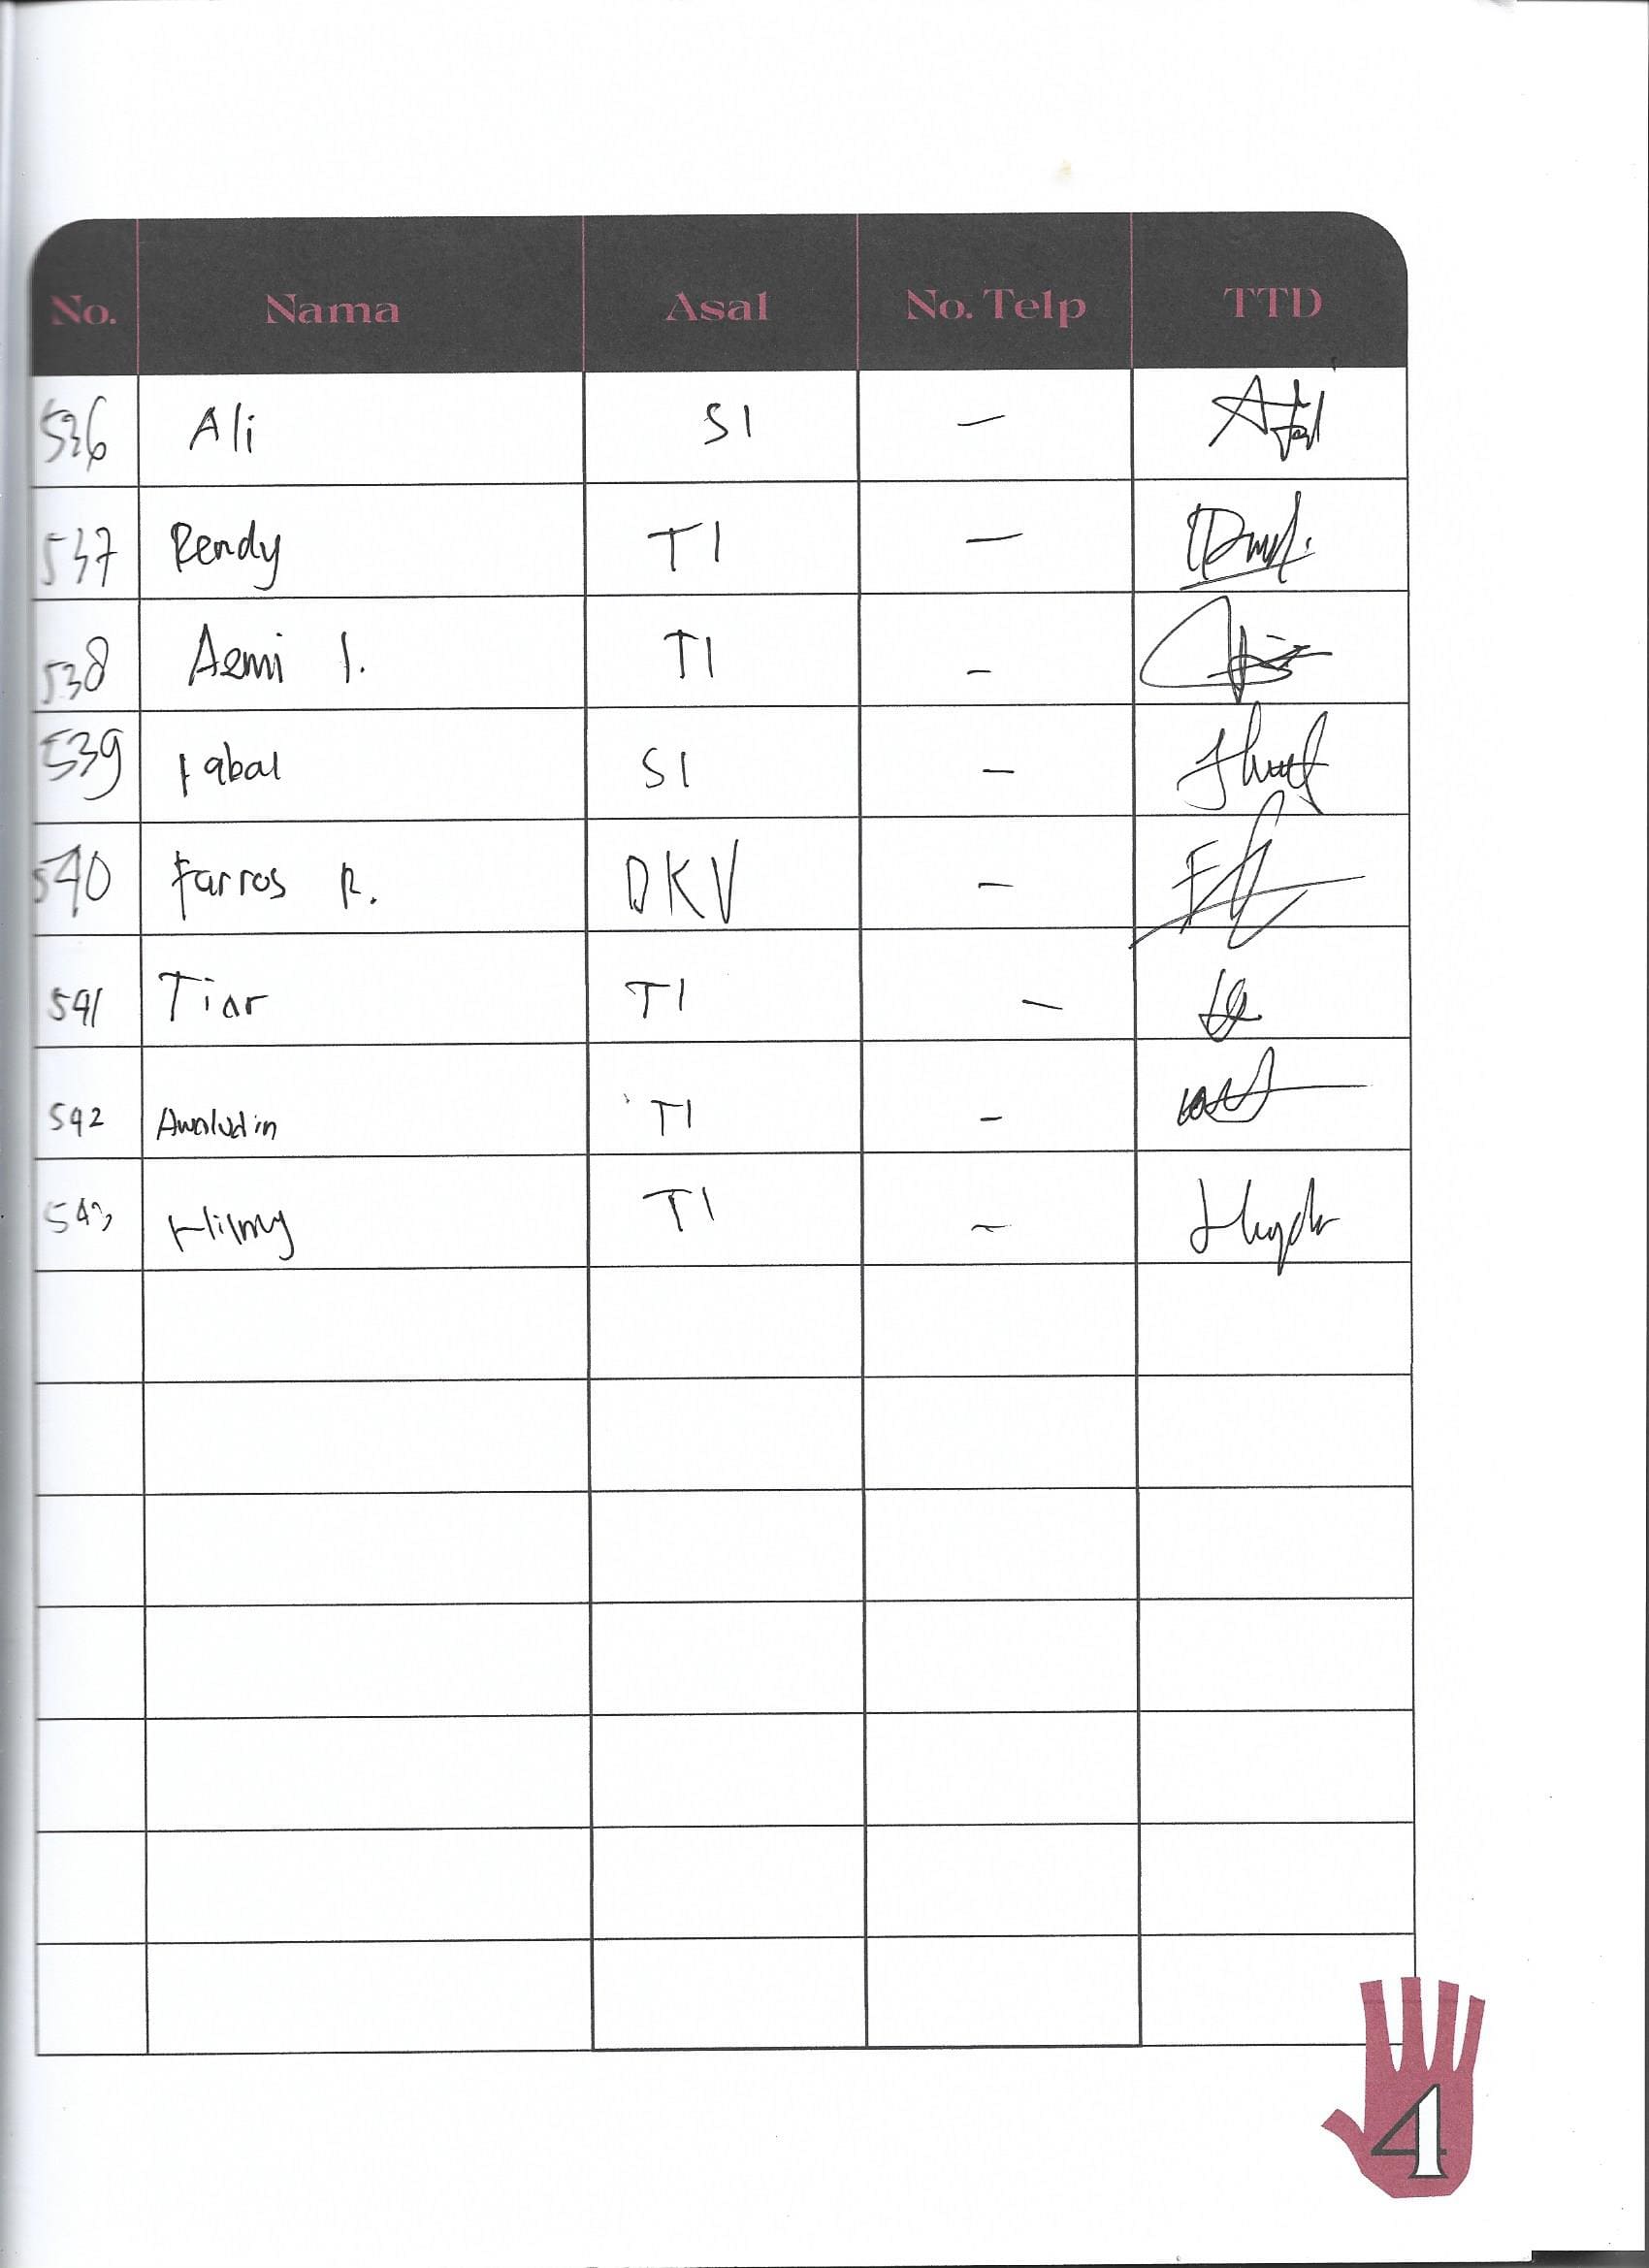 No. Nama Asal No. Telp TTD
536 Ali SI –
537 Rendy TI –
538 Azmi I. TI –
539 Iqbal SI –
540 Farros R. DKV –
541 Tiar TI –
542 Awaludin TI –
543 Hilmy TI –
4